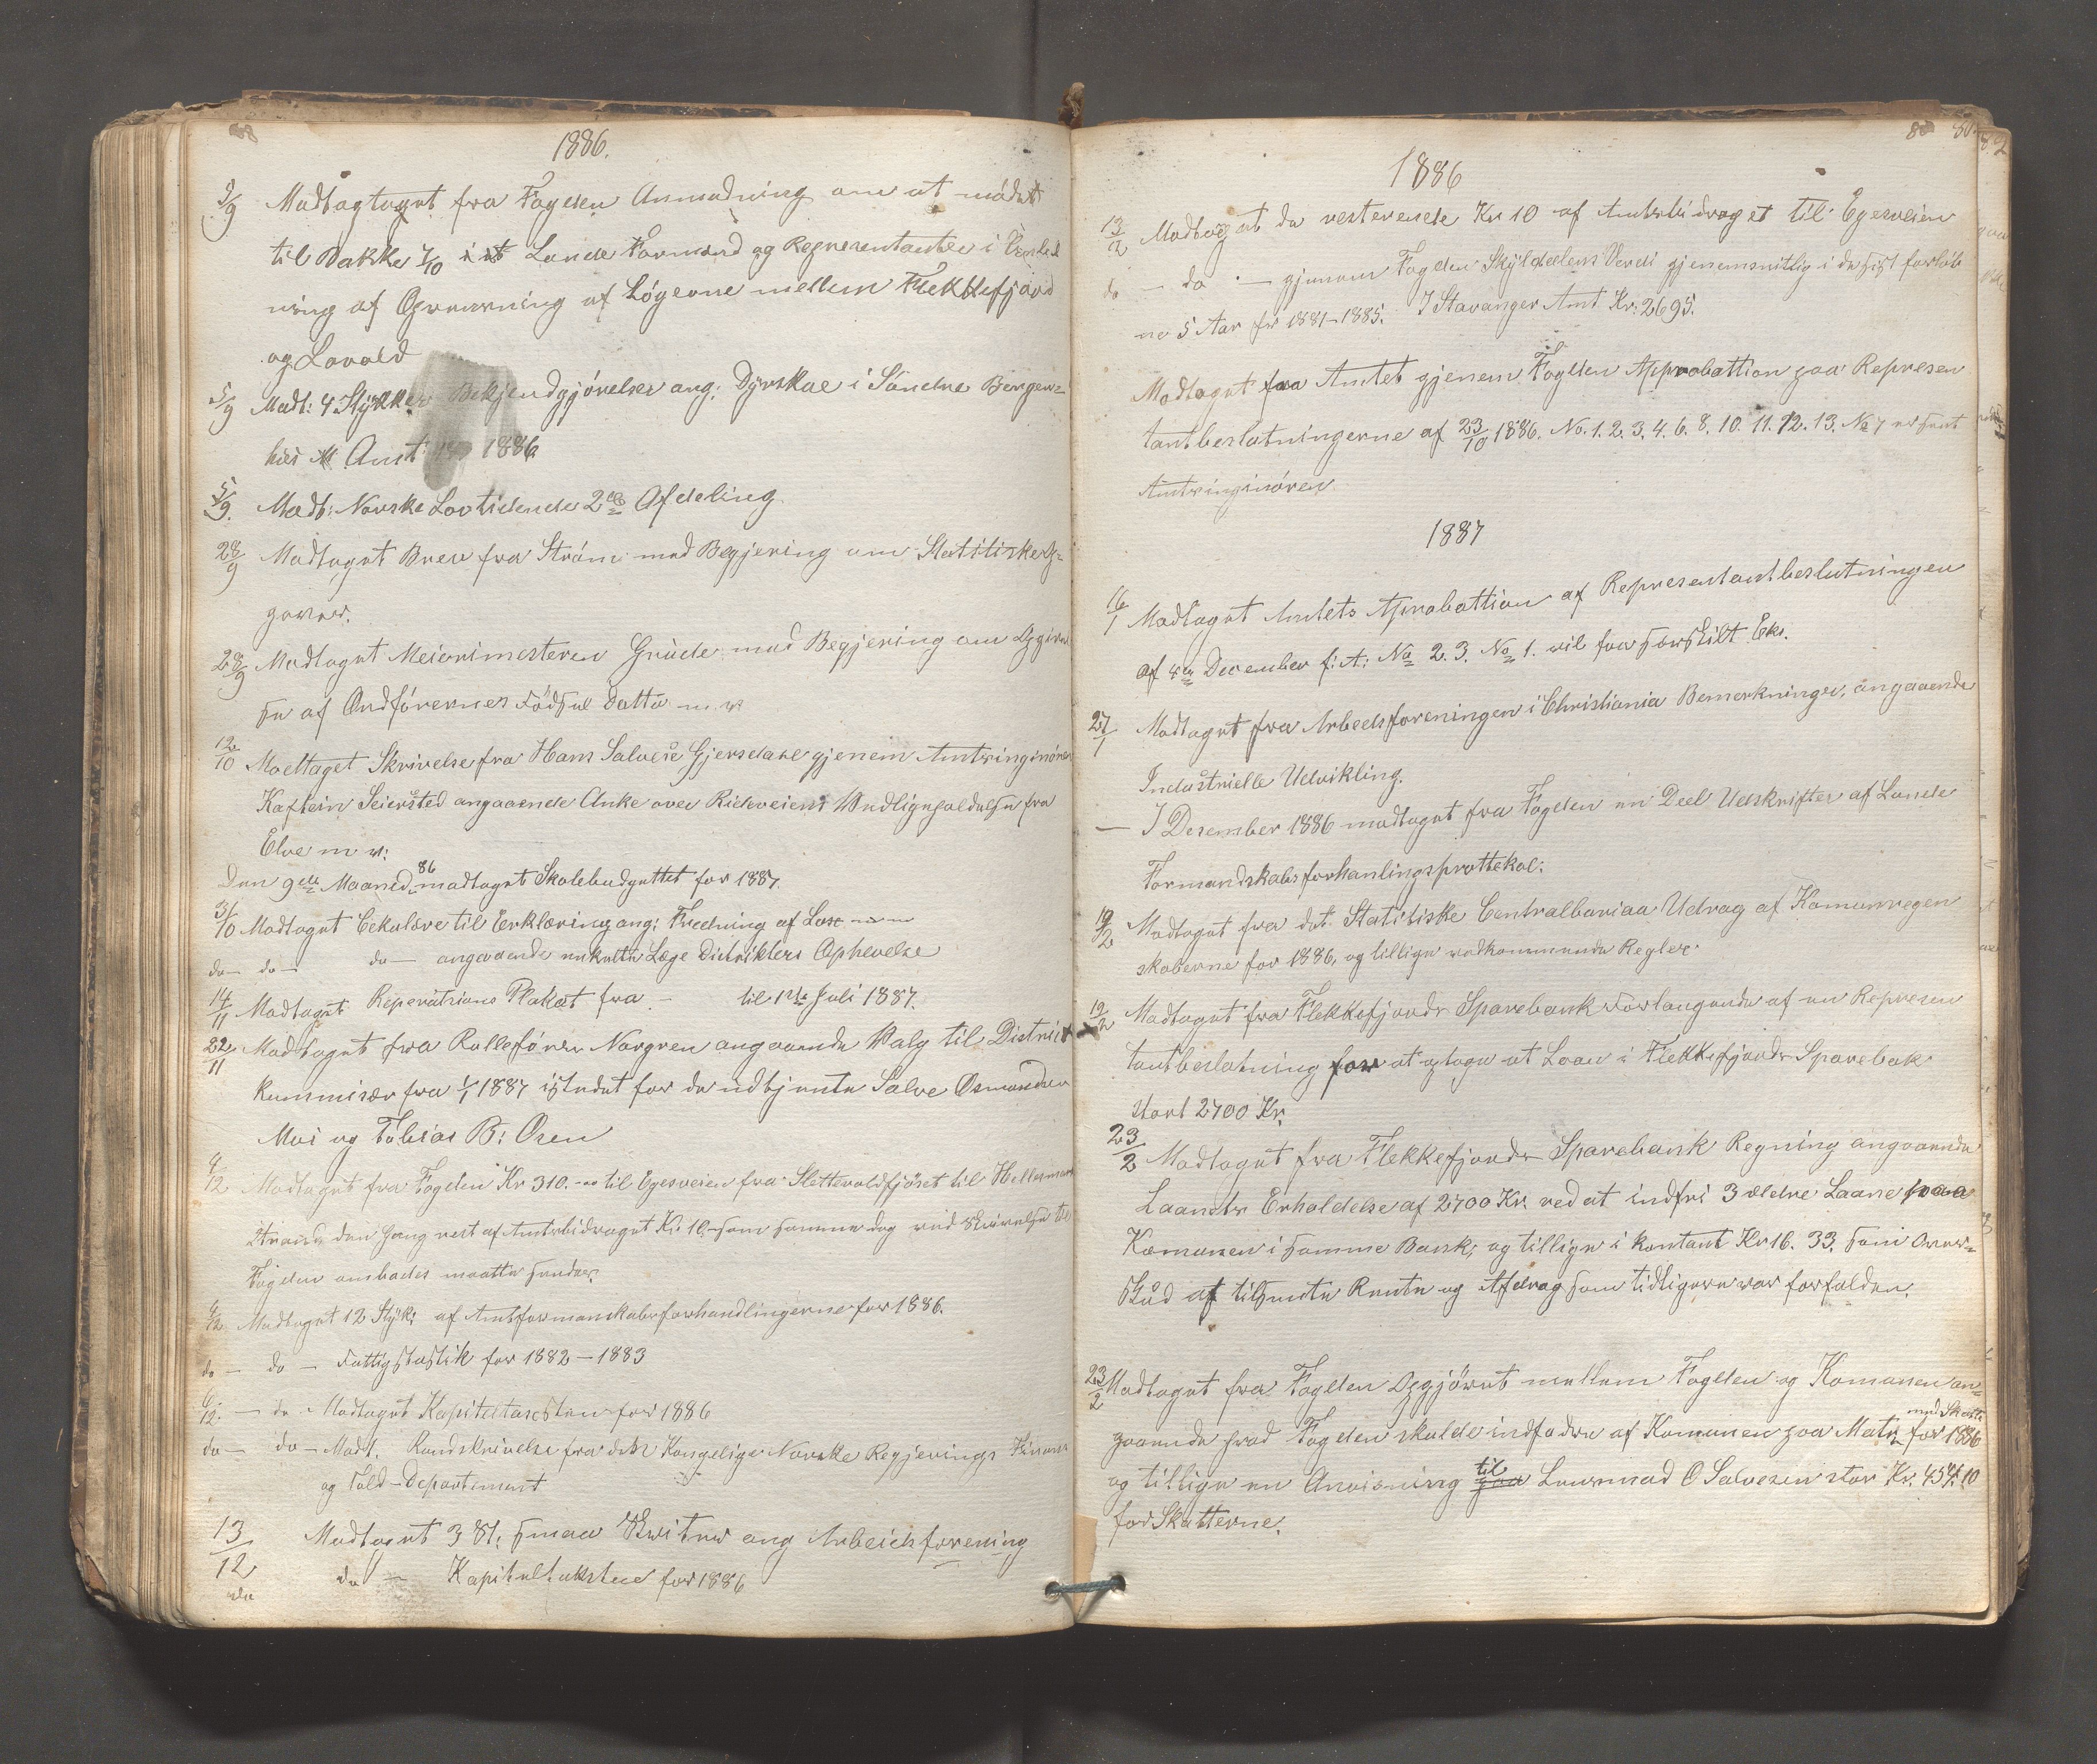 1886.
5/9 Modtagtaget fra Fogden Anmodning om at mødet
til Bakke 1/10 Lunde Formænd og Representanter i
ning af Opreisning af Løgerne mellem Flekkefjord
og Lovald
5/9 Modt: 4 Stykker Bekjendgjørelser ang: Dyrskue i Søndre Bergen-
hus Amt 1886
5/9. Modt: Norske Lovtidende 2den Afdeling
28/9 Modtaget Brev fra Strøm med Begjering om Statitiske Op-
gaver.
28/9 Modtaget Meierimesteren Grude med Begjering om Opgivel
se af Ordførernes Fødsel Datto m. v
12/10 Modtaget Skrivelse fra Hans Salvese Gjersdahl gjenem Amtsinginøren
Kaptein Seiersted angaaende Anke over Rideveiens Vedligeholdelse fra
Elve m v:
Den 9de Maaned 86 modtaget Skolebudgettet for 1887.
31/10 Modtaget Cekulære til Erklæring ang: Fredning af Lax
do — do — do — angaaende enkelte Læge Distrikters Ophevelse
14/11 Modtaget Reperations Plakat fra — til 1ste Juli 1887.
22/11 Modtaget fra Rullefører Norgren angaaende Valg til District
kummisær fra 1/1 1887 istedet for de udtjente Salve Osmundsen
Moi og Tobias B: Osen
4/12 Modtaget fra Fogden Kr 310. — til Egesveien fra Slettevoldfjøset til Hellemans
strand den Gang rest af Amtsbidraget Kr. 10, som samme dag ved Skrivelse til
Fogden ombades maatte sendes.
4/12 Modtaget 12 Styk: af Amtsformanskabsforhandlingerne for 1886.
do — do — Fattigstastik for 1882—1883
6/12. — do Modtaget Kapitaltaxsten for 1886
do — do — Modt. Rundskrivelse fra det Kongelige Norske Regjerings Finans
og Told-Departement
13/12 Modtaget 3 St: smaa Skrifter ang Arbeidsforening
do — Kapitaltaksten for 1886
1886
13/12 Modtaget de resterende Kr 10 af Amtsbidraget til Egesveien
do — do — gjenom Fogden Skylddelens Verdi gjenemsnitlig i de sist forløb
ne 5 Aar fr 1881—1885. I Stavanger Amt Kr: 2695.
Modtaget fra Amtet gjenem Fogden Approbattion paa Represen
tantbeslutningerne af 23/10 1886. No. 1. 2. 3. 4. 6. 8. 10. 11. 12. 13. No 7 er sent
Amtsinginøren
1887
16/1 Modtaget Amtets Aprobattion af Representantbeslutningen
af 4de December f: A: No 2. 3. No 1. vil
27/1 Modtaget fra Arbeidsforeningen i Christiania Bemerkninger, angaaende
Industrielle Udvikling.
— I Desember 1886 modtaget fra Fogden en Deel Udskrifter af Lunde
Formandskabsforhanlingsprottekol.
19/2 Modtaget fra det Statitiske Centralburiaa Udrag af Komunregen
skaberne for 1886, og tillige vedkommende Regler
19/2 Modtaget fra Flekkefjords Sparebank Forlangende af en Represen
tantbeslutning for at optage et Loan i Flekkefjords Sparebak
stort 2700 Kr.
23/2 Modtaget fra Flekkefjords Sparebank Regning angaaende
Laanets Erholdelse af 2700 Kr. ved at indfri 3 ældre Laane paa
Komunen i samme Bank, og tillige i kontant Kr 16. 33. som Over-
skud af tilsente Rente og Afdrag som tidligere var forfalden.
23/2 Modtaget fra Fogden Opgjøret mellem Fogden og Komunen an-
gaaende hvad Fogden skulde indfodre af Komunen paa Matr med Skatte for 1886
og tillige en Anvisning til paa Lensmad O Salvesen stor Kr. 454.10
for Skatterne.